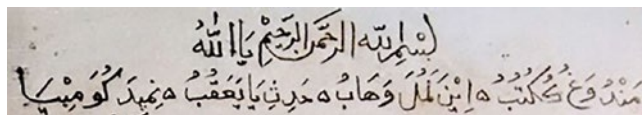 بِسْمِ اللّٰهِ الرَّحْمٰنِ الرَّحِيْمِ يَا اَللّٰهُ
مَنْدُ وَغُ كُكُتُبُ ه اِيْنَ لَمُلَ وَهَابُ ه حَدِثِ يَا يَعَقُبُ ه نِمِبِدَ كُوَمِبْيَا